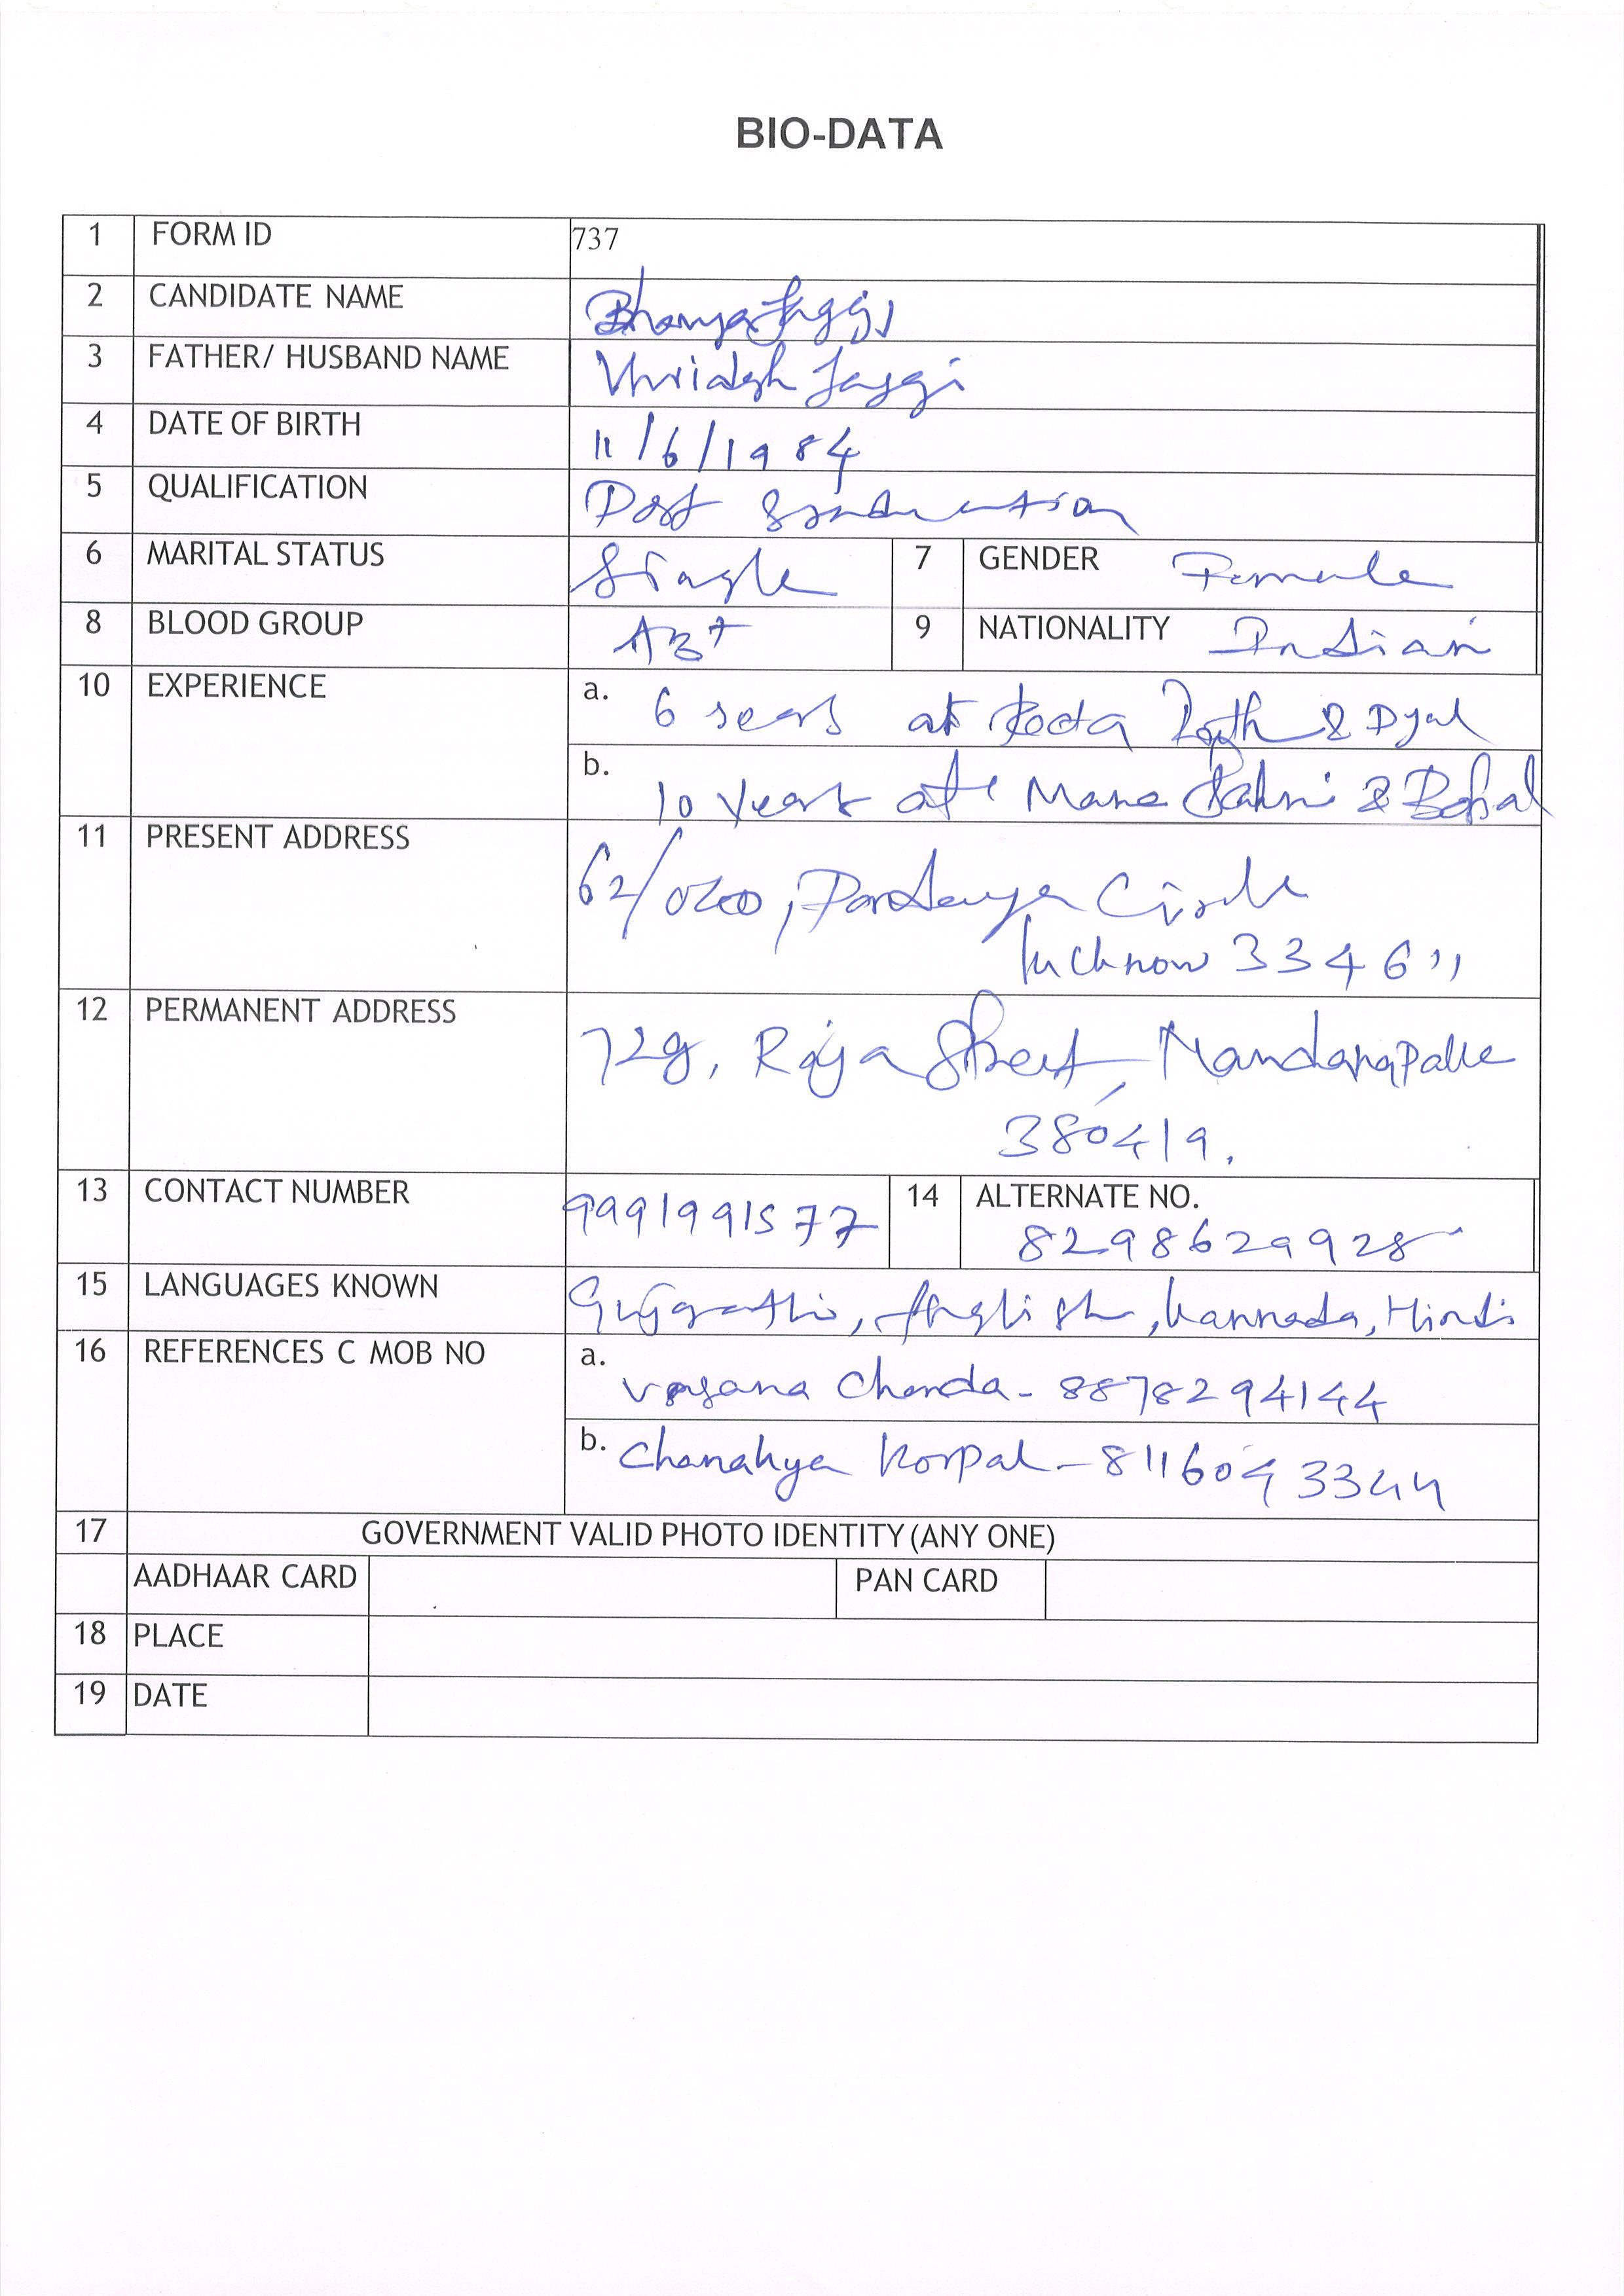 BIO-DATA
1 FORM ID 737
2 CANDIDATE NAME Bhavya Jaggi
3 FATHER/ HUSBAND NAME Jaggi
4 DATE OF BIRTH 11/6/1984
5 QUALIFICATION Post Graduation
6 MARITAL STATUS Single 7 GENDER Female
8 BLOOD GROUP AB+ 9 NATIONALITY Indian
10 EXPERIENCE a. 6 years at & Dyal
b. 10 years at Mane &
11 PRESENT ADDRESS 62/ Circle
Lucknow 334611
12 PERMANENT ADDRESS 728, Raja Street,
380419.
13 CONTACT NUMBER 9991991577 14 ALTERNATE NO.
8298629928
15 LANGUAGES KNOWN Gujarathi, English, Kannada, Hindi
16 REFERENCES C MOB NO a.
Chanda - 8878294144
b. Chanakya Korpal - 8116043344
17 GOVERNMENT VALID PHOTO IDENTITY (ANY ONE)
AADHAAR CARD PAN CARD
18 PLACE
19 DATE